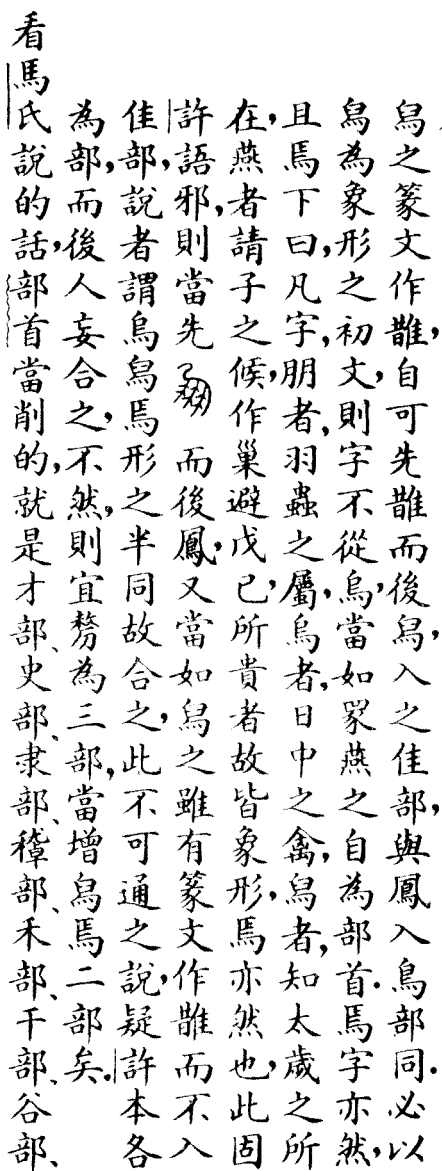 舄之篆文作䧿,自可先䧿而後舄,入之佳部,與鳳入鳥部同.必以
舄為象形之初文,則字不從烏,當如燕之自為部首.焉字亦然,以
且焉下曰,凡字,朋者,羽蟲之屬,烏者,日中之禽,舄者,知太歲之所
在,燕者請子之候,作巢避戊己,所貴者故皆象形,焉亦然也,此固
許語邪,則當先而後鳳,又當如舄之雖有篆文作䧿而不入
佳部,說者謂烏舄焉形之半同故合之,此不可通之說,疑許本各
為部,而後人妄合之,不然,則宜剺為三部,當增舄焉二部矣.
看馬氏說的話,部首當削的,就是才部、史部、隶部、稽部、禾部、干部、谷部、